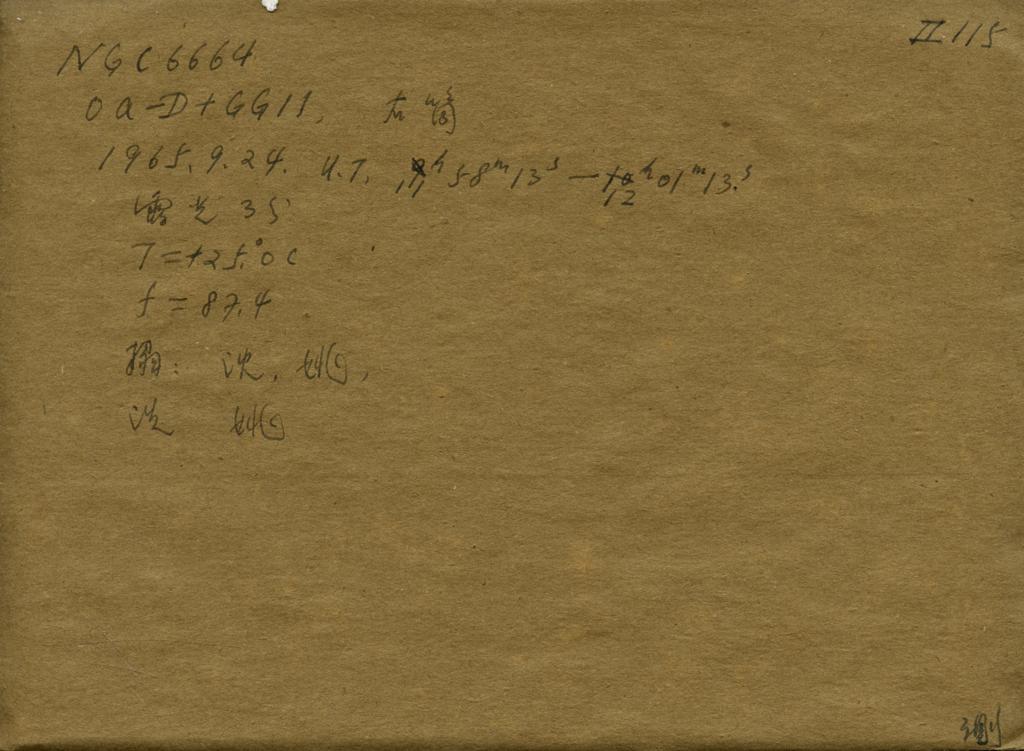 II 115
NGC6664
Oa-D+GG11, 右筒
1965.9.24. U.T. 11ʰ58ᵐ13ˢ — 12ʰ01ᵐ13ˢ
露光 3分
T=+25.°0 C
f=87.4
摄: 沈, 姚,
洗 姚